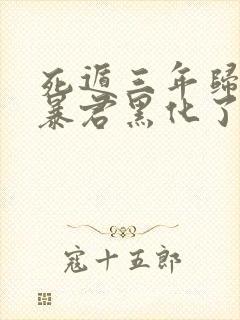 死遁三年歸
暴君黑化了
寇十五郎